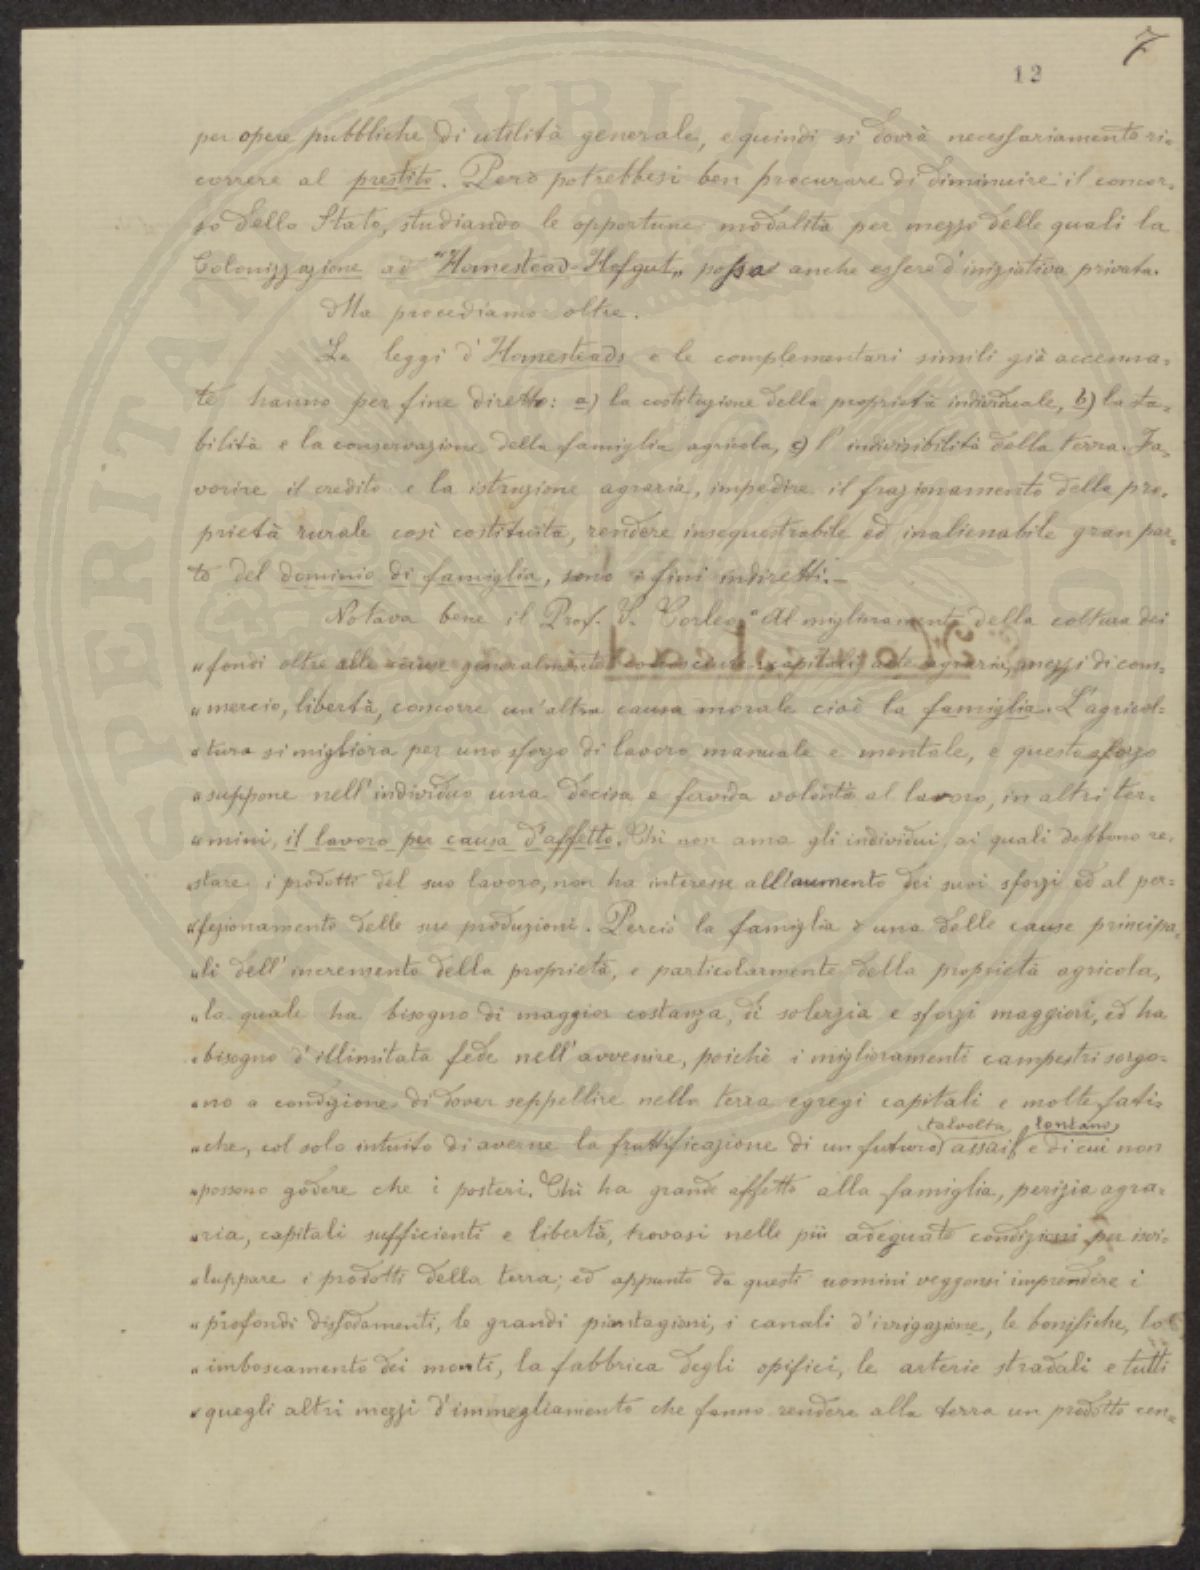 7
12
per opere pubbliche di utilità generale, e quindi si dovrà necessariamente ri-
correre al prestito. Però potrebbesi ben procurare di diminuire il concor-
so dello Stato, studiando le opportune modalità per mezzo delle quali la
Colonizzazione ad "Homestead-Hofgut„ possa anche essere d'iniziativa privata.
Ma procediamo oltre.
Le leggi d'Homesteads e le complementari simili già accenna-
te hanno per fine diretto: a) la costituzione della proprietà individuale, b) la sta-
bilità e la conservazione della famiglia agricola, c) l'indivisibilità della terra. Fa-
vorire il credito e la istruzione agraria, impedire il frazionamento della pro-
prietà rurale così costituita, rendere insequestrabile ed inalienabile gran par-
te del dominio di famiglia, sono i fini indiretti.—
Notava bene il Prof. S. Corleo "Al miglioramento della coltura dei
"fondi oltre alle cause generalmente capitali, arte agraria, mezzi di com-
"mercio, libertà, concorre un'altra causa morale cioè la famiglia. L'agricol-
"tura si migliora per uno sforzo di lavoro manuale e mentale, e questo sforzo
"suppone nell'individuo una decisa e fervida volontà al lavoro, in altri ter-
"mini, il lavoro per causa d'affetto. Chi non ama gli individui, ai quali debbono re-
"stare i prodotti del suo lavoro, non ha interesse all'aumento dei suoi sforzi ed al per-
"fezionamento delle sue produzioni. Perciò la famiglia è una delle cause principa-
"li dell'incremento della proprietà, e particolarmente della proprietà agricola,
"la quale ha bisogno di maggior costanza, di solerzia e sforzi maggiori, ed ha
"bisogno d'illimitata fede nell'avvenire, poichè i miglioramenti campestri sorgo-
"no a condizione di dover seppellire nella terra egregi capitali e molte fati-
talvolta lontano
"che, col solo intuito di averne la fruttificazione di un futuro assai e di cui non
"possono godere che i posteri. Chi ha grande affetto alla famiglia, perizia agra-
"ria, capitali sufficienti e libertà, trovasi nelle più adeguate condizioni per isvi-
"luppare i prodotti della terra; ed appunto da questi uomini veggonsi imprendere i
"profondi dissodamenti, le grandi piantagioni, i canali d'irrigazione, le bonifiche, lo
"imboscamento dei monti, la fabbrica degli opifici, le arterie stradali e tutti
"quegli altri mezzi d'immegliamento che fanno rendere alla terra un prodotto cen-